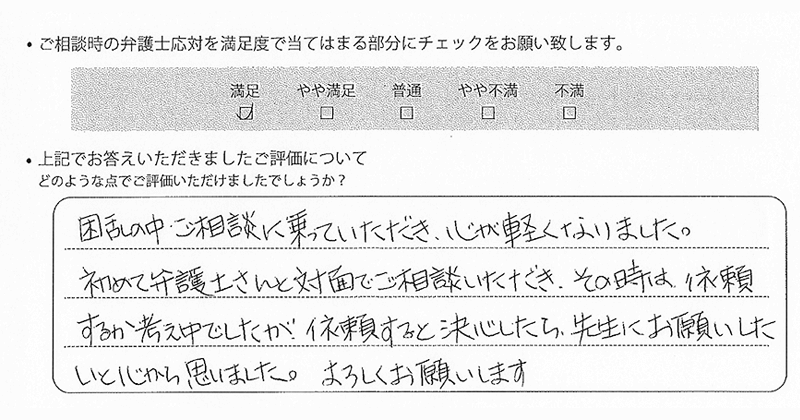 ・ご相談時の弁護士応対を満足度で当てはまる部分にチェックをお願い致します。
満足 やや満足 普通 やや不満 不満
☑ □ □ □ □
・上記でお答えいただきましたご評価について
どのような点でご評価いただけましたでしょうか？
困乱の中、ご相談に乗っていただき、心が軽くなりました。
初めて弁護士さんと対面でご相談いただき、その時は、依頼
するか考え中でしたが、依頼すると決心したら、先生にお願いした
いと心から思いました。 よろしくお願いします